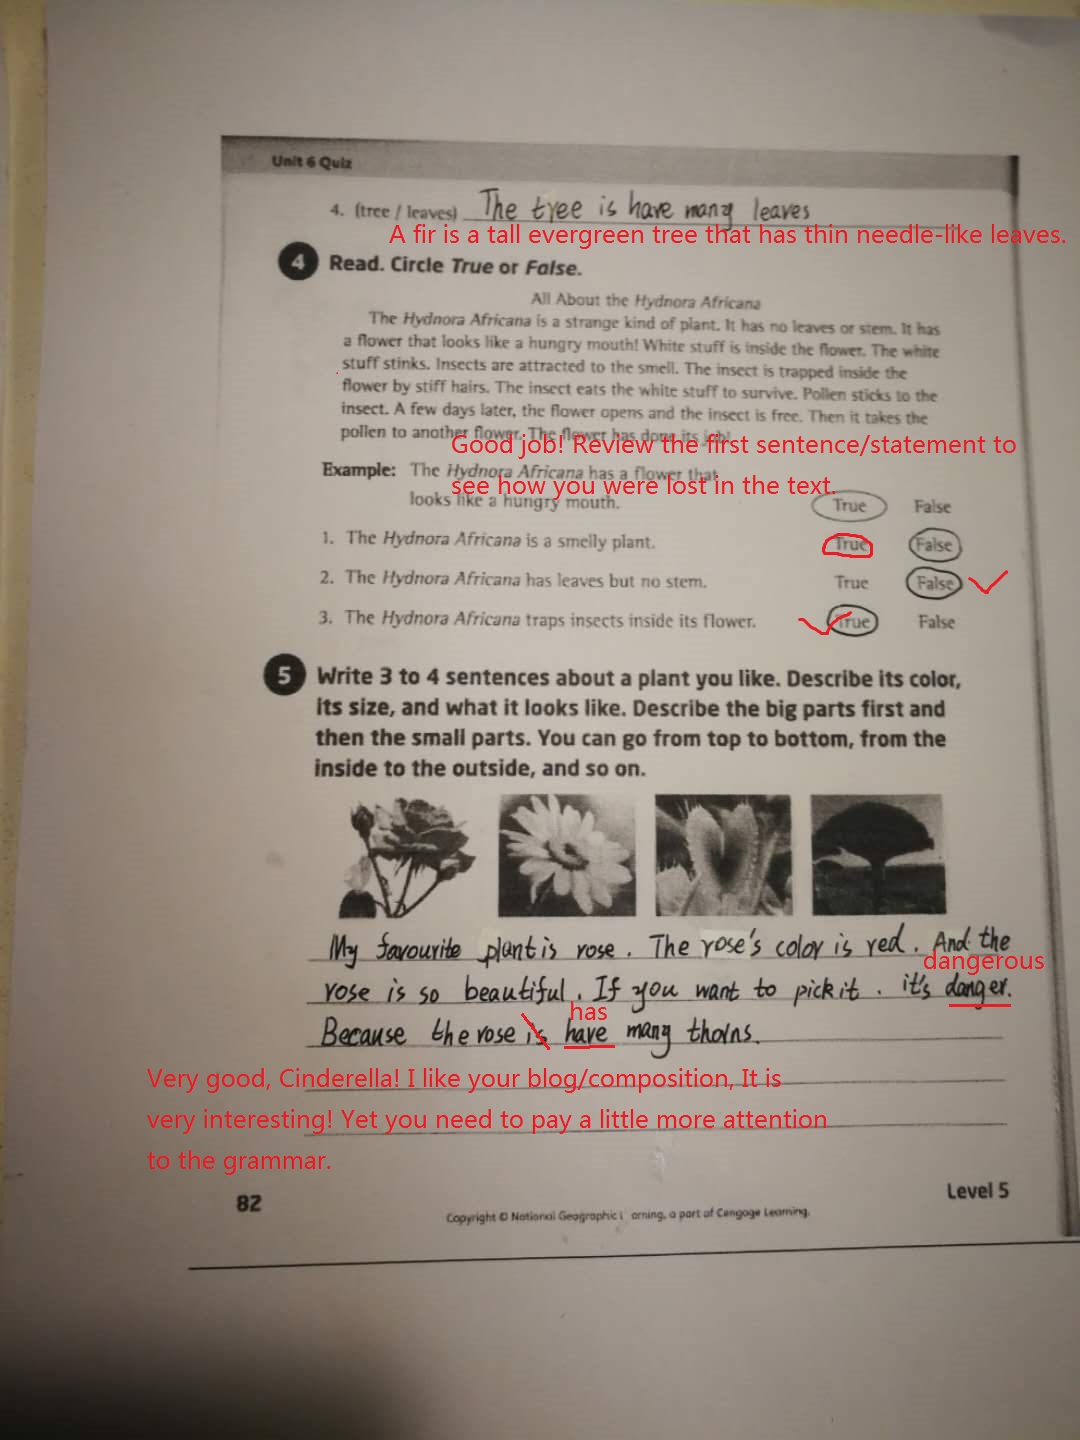 Unit 6 Quiz
4. (tree / leaves) The tree is have many leaves
A fir is a tall evergreen tree that has thin needle-like leaves.
4 Read. Circle True or False.
All About the Hydnora Africana
The Hydnora Africana is a strange kind of plant. It has no leaves or stem. It has
a flower that looks like a hungry mouth! White stuff is inside the flower. The white
stuff stinks. Insects are attracted to the smell. The insect is trapped inside the
flower by stiff hairs. The insect eats the white stuff to survive. Pollen sticks to the
insect. A few days later, the flower opens and the insect is free. Then it takes the
pollen to another flower. The flower has done its job!
Good job! Review the first sentence/statement to
see how you were lost in the text.
Example: The Hydnora Africana has a flower that
looks like a hungry mouth. True False
1. The Hydnora Africana is a smelly plant. True False
2. The Hydnora Africana has leaves but no stem. True False
3. The Hydnora Africana traps insects inside its flower. True False
5 Write 3 to 4 sentences about a plant you like. Describe its color,
its size, and what it looks like. Describe the big parts first and
then the small parts. You can go from top to bottom, from the
inside to the outside, and so on.
My favourite plant is rose. The rose's color is red. And the
dangerous
rose is so beautiful. If you want to pick it. it's danger.
has
Because the rose is have many thorns.
Very good, Cinderella! I like your blog/composition, It is
very interesting! Yet you need to pay a little more attention
to the grammar.
82
Level 5
Copyright © National Geographic arning, a part of Cengage Learning.